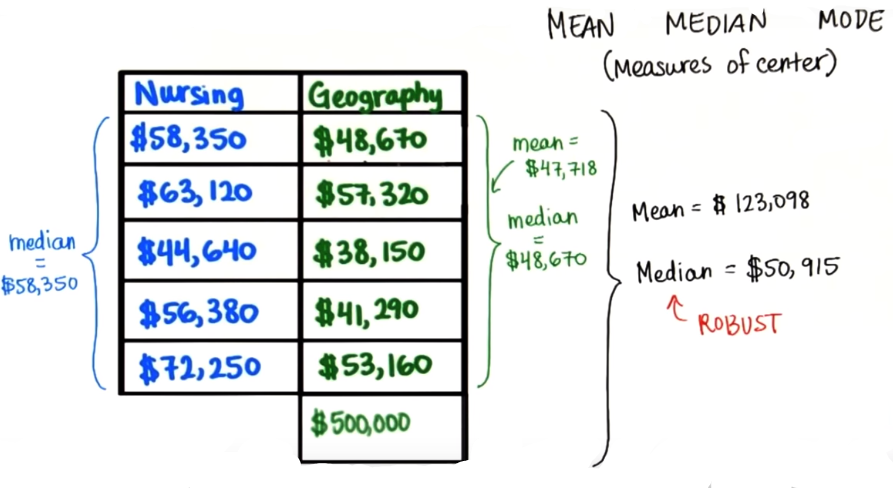 MEAN MEDIAN MODE
(Measures of center)
Nursing Geography
$58,350 $48,670
$63,120 $57,320
$44,640 $38,150
$56,380 $41,290
$72,250 $53,160
$500,000
median
=
$58,350
mean =
$47,718
median
=
$48,670
Mean = $ 123,098
Median = $50,915
ROBUST